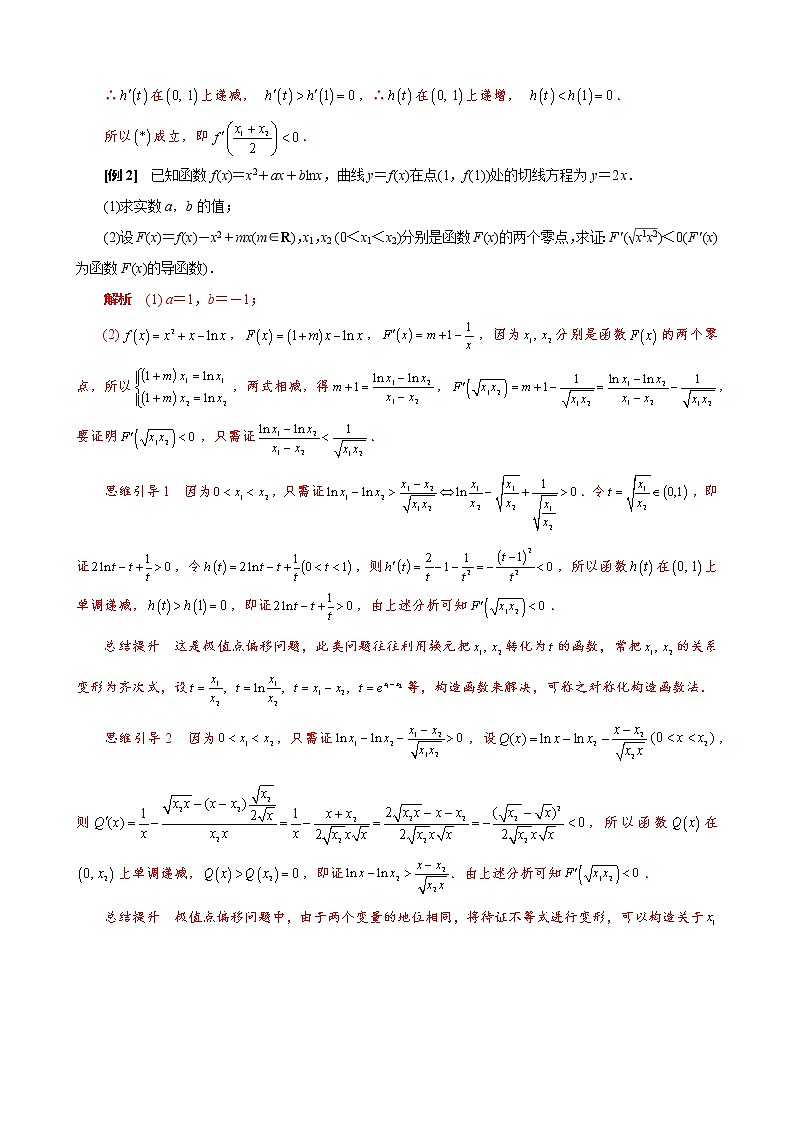 ∴h′(t)在(0, 1)上递减， h′(t)>h′(1)=0，∴h(t)在(0, 1)上递增， h(t)<h(1)=0．
所以(*)成立，即 f′((x₁+x₂)/2)<0．
[例2] 已知函数 f(x)＝x²＋ax＋blnx，曲线y＝f(x)在点(1，f(1))处的切线方程为y＝2x．
(1)求实数a，b的值；
(2)设F(x)＝f(x)－x²＋mx(m∈R)，x₁,x₂ (0＜x₁＜x₂)分别是函数F(x)的两个零点，求证：F′(√(x1x2))＜0(F′(x)
为函数F(x)的导函数)．
解析 (1) a＝1，b＝－1；
(2) f(x)=x²+x−lnx，F(x)=(1+m)x−lnx，F′(x)=m+1−1/x，因为x₁, x₂分别是函数F(x)的两个零
点，所以{(1+m)x₁=lnx₁ (1+m)x₂=lnx₂，两式相减，得m+1=(lnx₁−lnx₂)/(x₁−x₂)，F′(√(x₁x₂))=m+1−1/√(x₁x₂)=(lnx₁−lnx₂)/(x₁−x₂)−1/√(x₁x₂)，
要证明F′(√(x₁x₂))<0，只需证(lnx₁−lnx₂)/(x₁−x₂)<1/√(x₁x₂)．
思维引导1 因为0<x₁<x₂，只需证lnx₁−lnx₂>(x₁−x₂)/√(x₁x₂)⇔ln x₁/x₂−√(x₁/x₂)+1/√(x₁/x₂)>0．令t=√(x₁/x₂)∈(0,1)，即
证2lnt−t+1/t>0，令h(t)=2lnt−t+1/t(0<t<1)，则h′(t)=2/t−1−1/t²=−(t−1)²/t²<0，所以函数h(t)在(0, 1)上
单调递减，h(t)>h(1)=0，即证2lnt−t+1/t>0，由上述分析可知F′(√(x₁x₂))<0．
总结提升 这是极值点偏移问题，此类问题往往利用换元把x₁, x₂转化为t的函数，常把x₁, x₂的关系
变形为齐次式，设t=x₁/x₂, t=ln x₁/x₂, t=x₁−x₂, t=e^(x₁−x₂)等，构造函数来解决，可称之对称化构造函数法．
思维引导2 因为0<x₁<x₂，只需证lnx₁−lnx₂−(x₁−x₂)/√(x₁x₂)>0，设Q(x)=lnx−lnx₂−(x−x₂)/√(x₂x)(0<x<x₂)，
则Q′(x)=1/x−(√(x₂x)−(x−x₂)√x₂/(2√x))/(x₂x)=1/x−(x+x₂)/(2√(x₂x)√x)=(2√(x₂x)−x−x₂)/(2√(x₂x)√x)=−(√x₂−√x)²/(2√(x₂x)√x)<0，所以函数Q(x)在
(0, x₂)上单调递减，Q(x)>Q(x₂)=0，即证lnx−lnx₂>(x−x₂)/√(x₂x)．由上述分析可知F′(√(x₁x₂))<0．
总结提升 极值点偏移问题中，由于两个变量的地位相同，将待证不等式进行变形，可以构造关于x₁